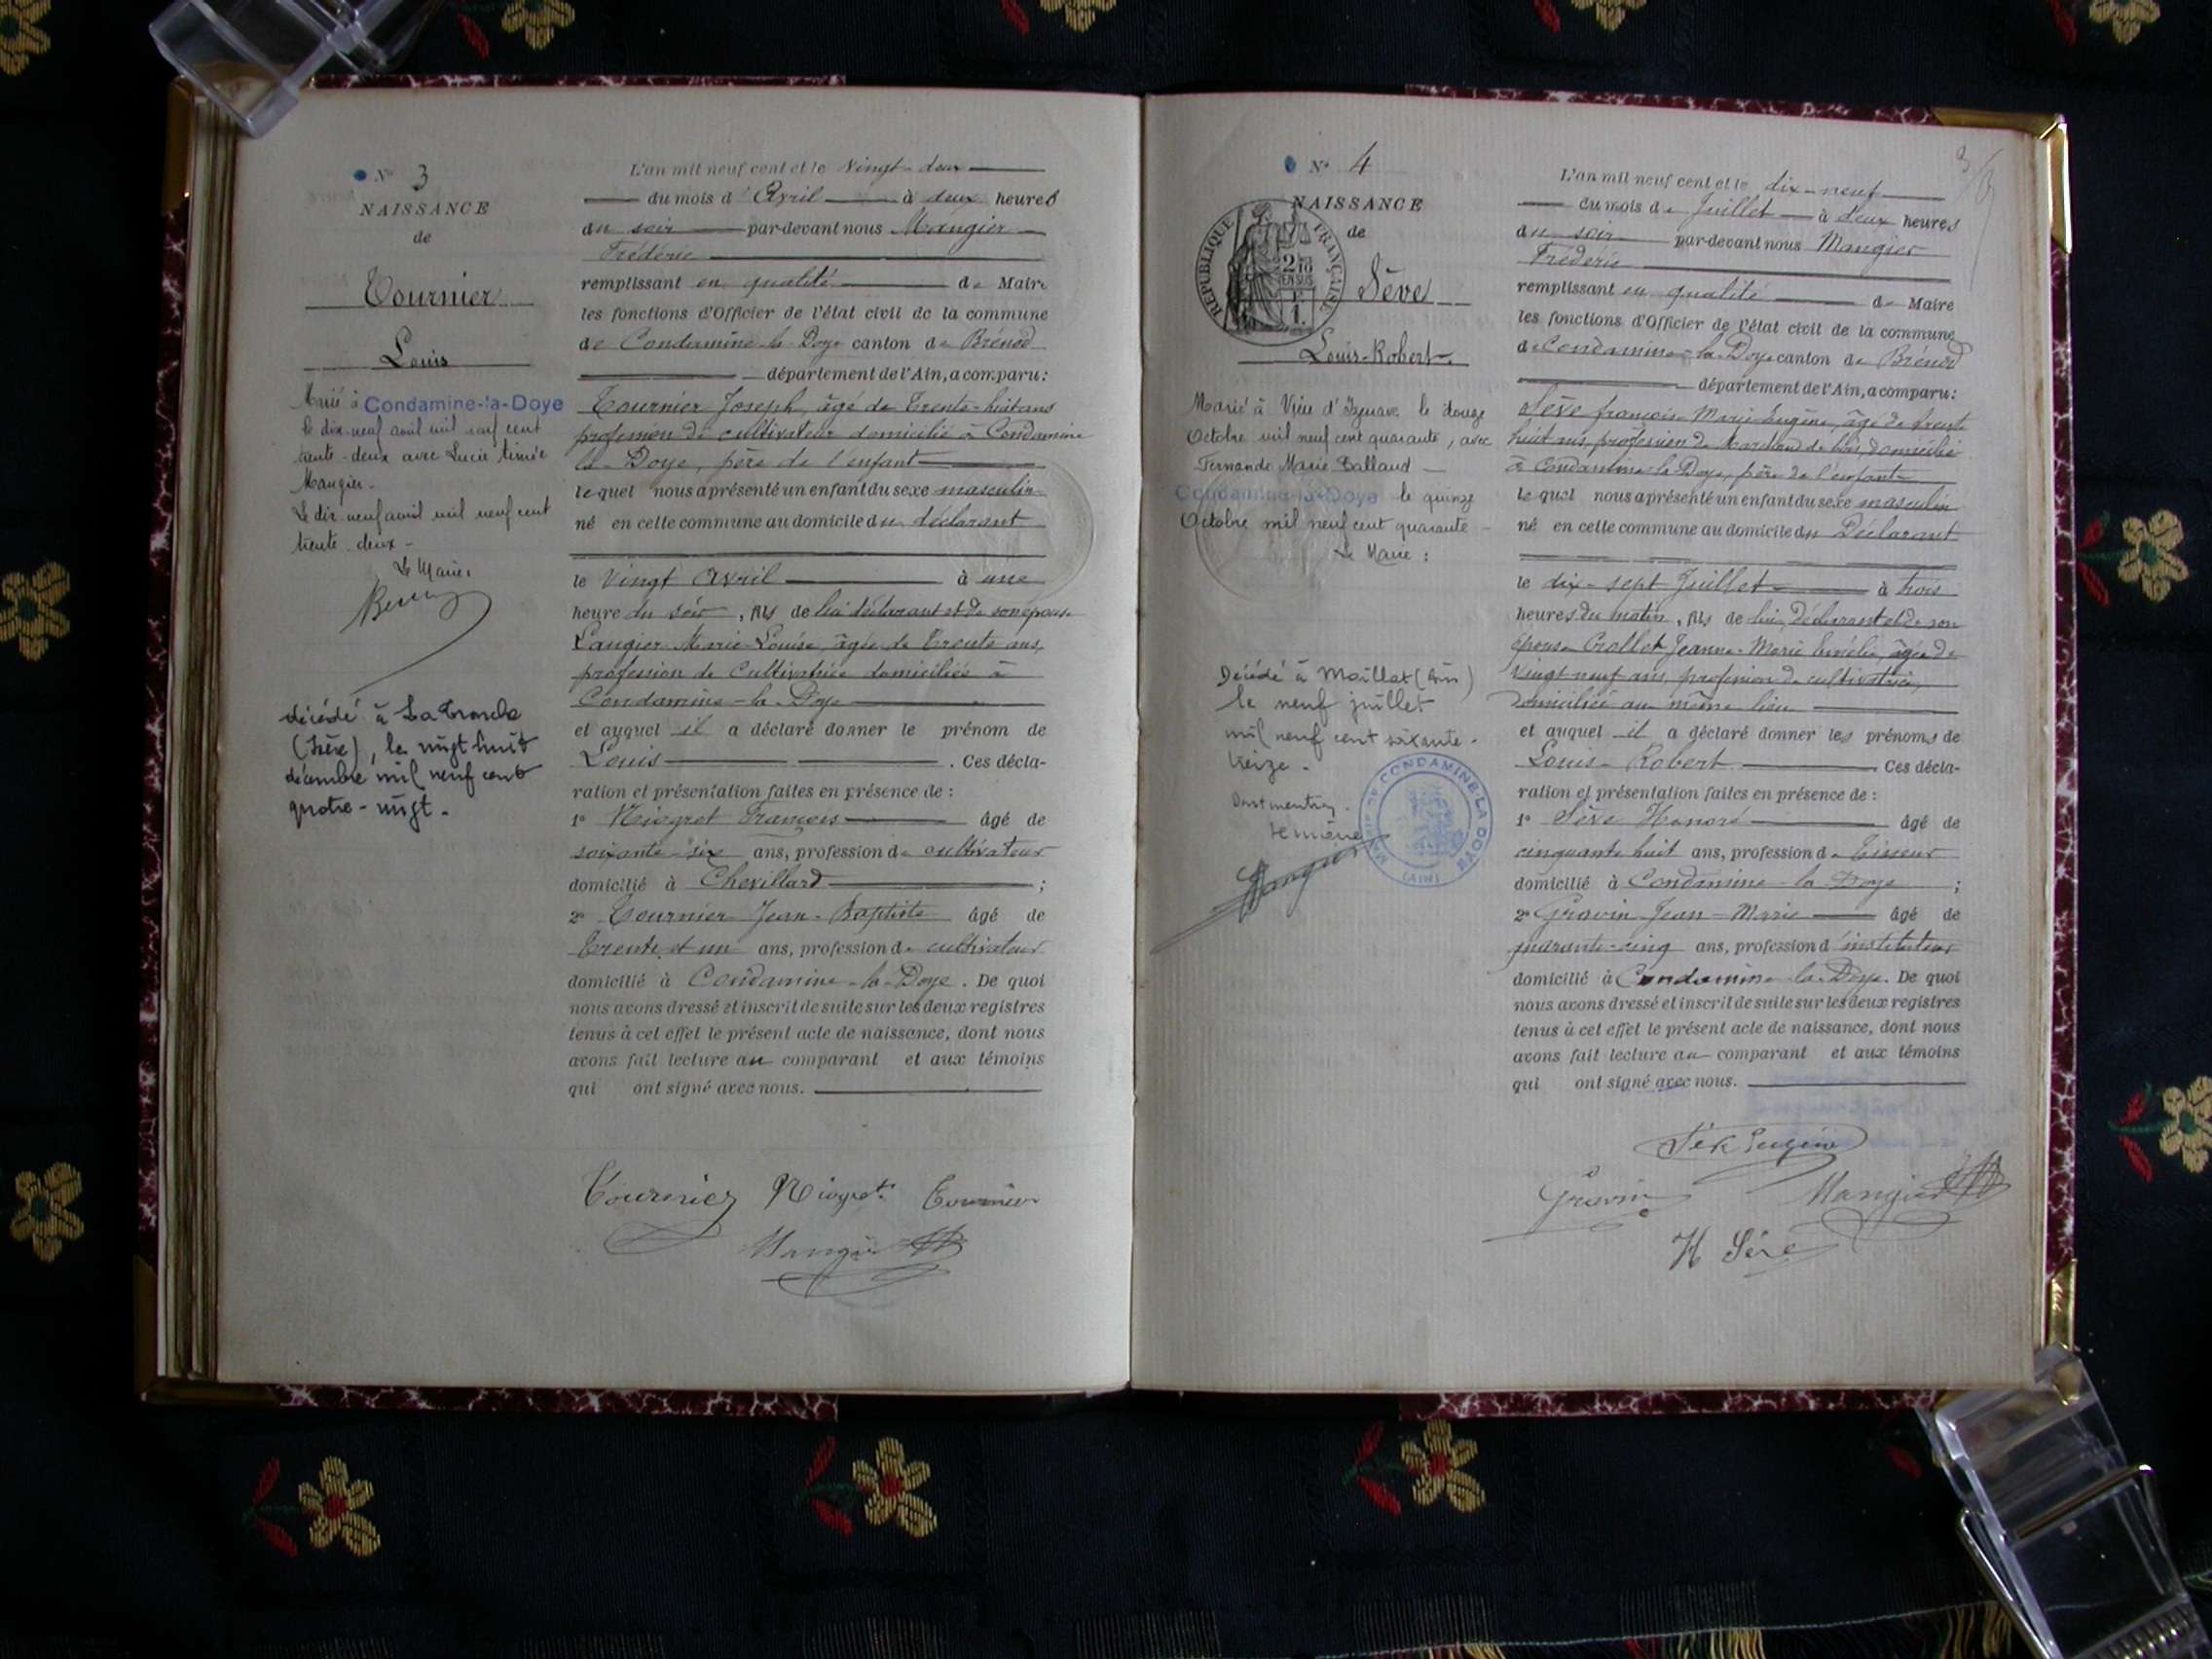 N° 3
NAISSANCE
de
Tournier
Louis
Marié à Condamine-la-Doye
le dix-neuf avril mil neuf cent
trente-deux avec Lucie Aimée
Mangier.
Le dix-neuf avril mil neuf cent
trente-deux -
Le Maire
décédé à La Tronche
(Isère), le vingt huit
décembre mil neuf cent
quatre-vingt.
L'an mil neuf cent et le vingt-deux
du mois d'Avril à deux heures
du soir par-devant nous Mangier
Frédéric
remplissant en qualité de Maire
les fonctions d'Officier de l'état civil de la commune
de Condamine-la-Doye canton de Brénod
département de l'Ain, a comparu:
Tournier Joseph, âgé de Trente-huit ans
profession de cultivateur domicilié à Condamine
la-Doye, père de l'enfant
lequel nous a présenté un enfant du sexe masculin
né en cette commune au domicile du déclarant
le vingt Avril à une
heure du soir, fils de lui déclarant et de son épouse
Laugier Marie-Louise, âgée de Trente ans,
profession de Cultivatrice domiciliée à
Condamine-la-Doye
et auquel il a déclaré donner le prénom de
Louis . Ces décla-
ration et présentation faites en présence de :
1° Niogret François âgé de
soixante-six ans, profession de cultivateur
domicilié à Chevillard ;
2° Tournier Jean-Baptiste âgé de
trente et un ans, profession de cultivateur
domicilié à Condamine-la-Doye. De quoi
nous avons dressé et inscrit de suite sur les deux registres
tenus à cet effet le présent acte de naissance, dont nous
avons fait lecture au comparant et aux témoins
qui ont signé avec nous.
Tournier Niogret Tournier
Mangier
N° 4
NAISSANCE
de
RÉPUBLIQUE FRANÇAISE
2/10
EN SUS
1.
Sève
Louis-Robert
Marié à Vieu d'Izenave le douze
Octobre mil neuf cent quarante, avec
Fernande Marie Ballaud
Condamine-la-Doye le quinze
Octobre mil neuf cent quarante -
Le Maire :
Décédé à Maillat (Ain)
le neuf juillet
mil neuf cent soixante-
treize -
MAIRIE DE CONDAMINE-LA-DOYE
(AIN)
L'an mil neuf cent et le dix-neuf
du mois de Juillet à deux heures
du soir par-devant nous Mangier
Frédéric
remplissant en qualité de Maire
les fonctions d'Officier de l'état civil de la commune
de Condamine-la-Doye canton de Brénod
département de l'Ain, a comparu:
Sève François-Marie-Eugène, âgé de trente
huit ans, profession de Marchand de bois, domicilié
à Condamine-la-Doye, père de l'enfant
lequel nous a présenté un enfant du sexe masculin
né en cette commune au domicile du Déclarant
le dix-sept Juillet à trois
heures du matin, fils de lui, Déclarant et de son
épouse Crollet Jeanne-Marie Emélie, âgée de
vingt neuf ans, profession de cultivatrice,
domiciliée au même lieu
et auquel il a déclaré donner les prénoms de
Louis-Robert . Ces décla-
ration et présentation faites en présence de :
1° Sève Honoré âgé de
cinquante huit ans, profession de Tisseur
domicilié à Condamine-la-Doye ;
2° Gravin Jean-Marie âgé de
quarante-cinq ans, profession d'instituteur
domicilié à Condamine-la-Doye. De quoi
nous avons dressé et inscrit de suite sur les deux registres
tenus à cet effet le présent acte de naissance, dont nous
avons fait lecture au comparant et aux témoins
qui ont signé avec nous.
Sève Eugène
Gravin Mangier
H Sève